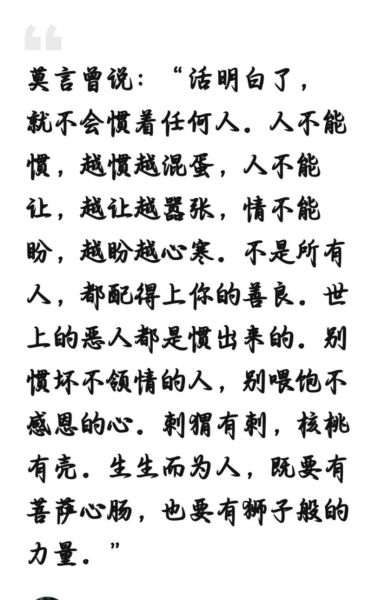 莫言曾说：“活明白了，
就不会惯着任何人。人不能
惯，越惯越混蛋，人不能
让，越让越嚣张，情不能
盼，越盼越心寒。不是所有
人，都配得上你的善良。世
上的恶人都是惯出来的。别
惯坏不领情的人，别喂饱不
感恩的心。刺猬有刺，核桃
有壳。生生而为人，既要有
菩萨心肠，也要有狮子般的
力量。”